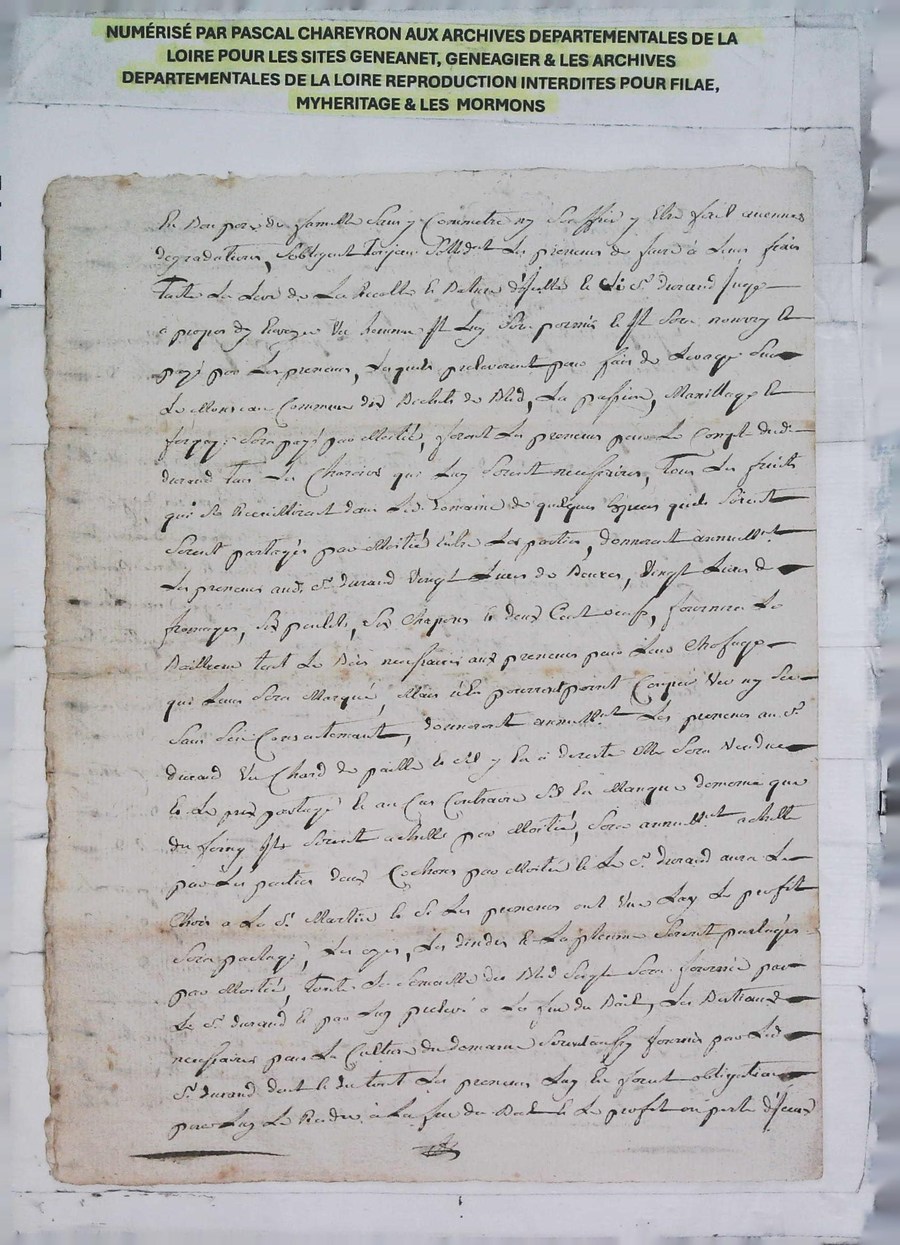 NUMÉRISÉ PAR PASCAL CHAREYRON AUX ARCHIVES DEPARTEMENTALES DE LA
LOIRE POUR LES SITES GENEANET, GENEAGIER & LES ARCHIVES
DEPARTEMENTALES DE LA LOIRE REPRODUCTION INTERDITES POUR FILAE,
MYHERITAGE & LES MORMONS
En bon pere de famille sans y Commetre ny Souffrir y Etre fait aucunes
degradations, Sobligent les preneurs de faire à leurs frais
toute la leve de la Recolte et Sr durand juge
à propos dy Envoyer Un homme Il luy Sera permis et Il Sera nourry et
payé par les preneurs, lesquels preleveront pour frais de
le Monceau Commun dix Bichets de Bled, la Marillage et
Sera payé par Moitié, feront les preneurs pour le Compte dudt
durand tous les Charrois qui luy Seront necessaires, tous les fruits
qui Se Recueilliront dans led. Domaine de quelques Espeses quils Soient
Seront partagés par Moitié Entre les parties, donneront annuellt
les preneurs aud. Sr durand Vingt Livres de Beurre, Vingt Livres de
fromages, Six poulets, Six Chapons et deux Cent oeufs, fournira le
Bailleur tout le Bois necessaire aux preneurs pour leur Chofage
qui leur Sera Marqué, Mais ils ny pourront point Couper Ver ny Sec
Sans Son Consentement, donneront annuellt les preneurs au Sr
durand Un Chard de paille et Sil y En a de reste Elle Sera Vendue
et le prix partagé et au Cas Contraire Sil En Manque de meme que
du foing Ils Seront achetté par Moitié, Sera annuellt achetté
par les parties deux Cochons par Moitié et le Sr durand aura le
Choix a la St Martin et Si les preneurs ont Une le profit
Sera partagé, les oyes, les dindes et la plume Seront partagés
par Moitié, toute la Semaille du Bled Seigle Sera fournie par
le Sr durand et par luy prelevé à la fin du Bail, les Bestiaux
necessaires pour la Culture du domaine Seront aussy fournis par led.
Sr durand dont et du tout les preneurs luy En feront obligation
pour luy le Rendre à la fin du Bail et le profit ou perte dIceux